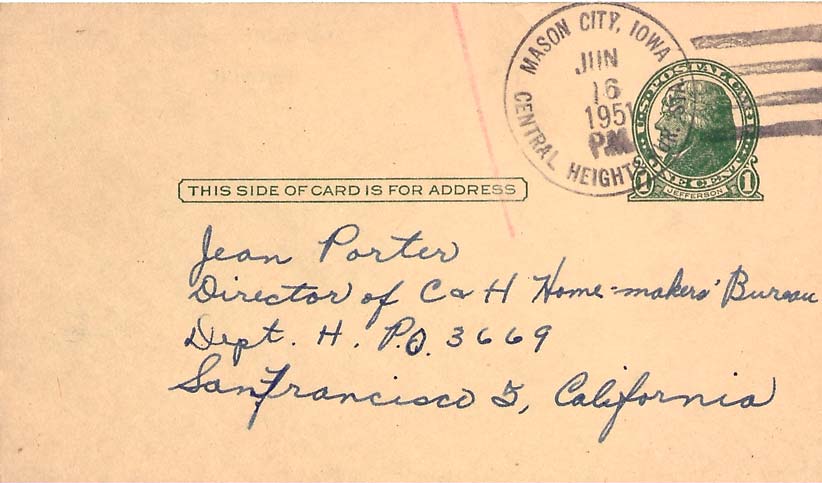 MASON CITY, IOWA
JUN
16
1951
PM
CENTRAL HEIGHTS RUR. STA.
U.S. POSTAL CARD
ONE CENT
1 JEFFERSON 1
THIS SIDE OF CARD IS FOR ADDRESS
Jean Porter
Director of C & H Home-makers' Bureau
Dept. H. P.O. 3669
San Francisco 5, California